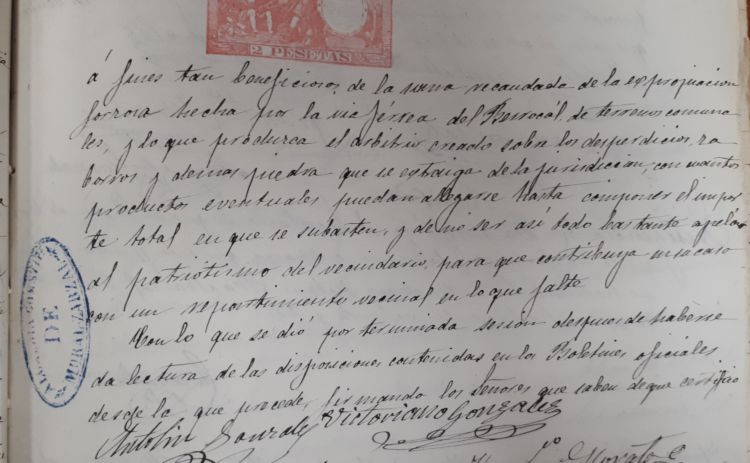 2 PESETAS
á fines tan beneficiosos, de la suma recaudada de la expropiacion
forzosa hecha por la via férrea del Berrocál, de terrenos comuna
les, y lo que produzca el arbitrio creado sobre los desperdicios, za
borros y demas piedra que se extraiga de la jurisdicion, con cuantos
productos eventuales puedan allegarse hasta componer el impor
te total en que se subasten, y de no ser así todo bastante apelar
al patriotismo del vecindario, para que contribuya en su caso
con un repartimiento vecinal en lo que falte
Con lo que se dió por terminada sesion despues de haberse
da lectura de las disposiciones contenidas en los Boletines oficiales
desde la que precede, firmando los Señores que saben de que certifico
Antolin Gonzalez Victoriano Gonzalez
DE
MORALZARZAL